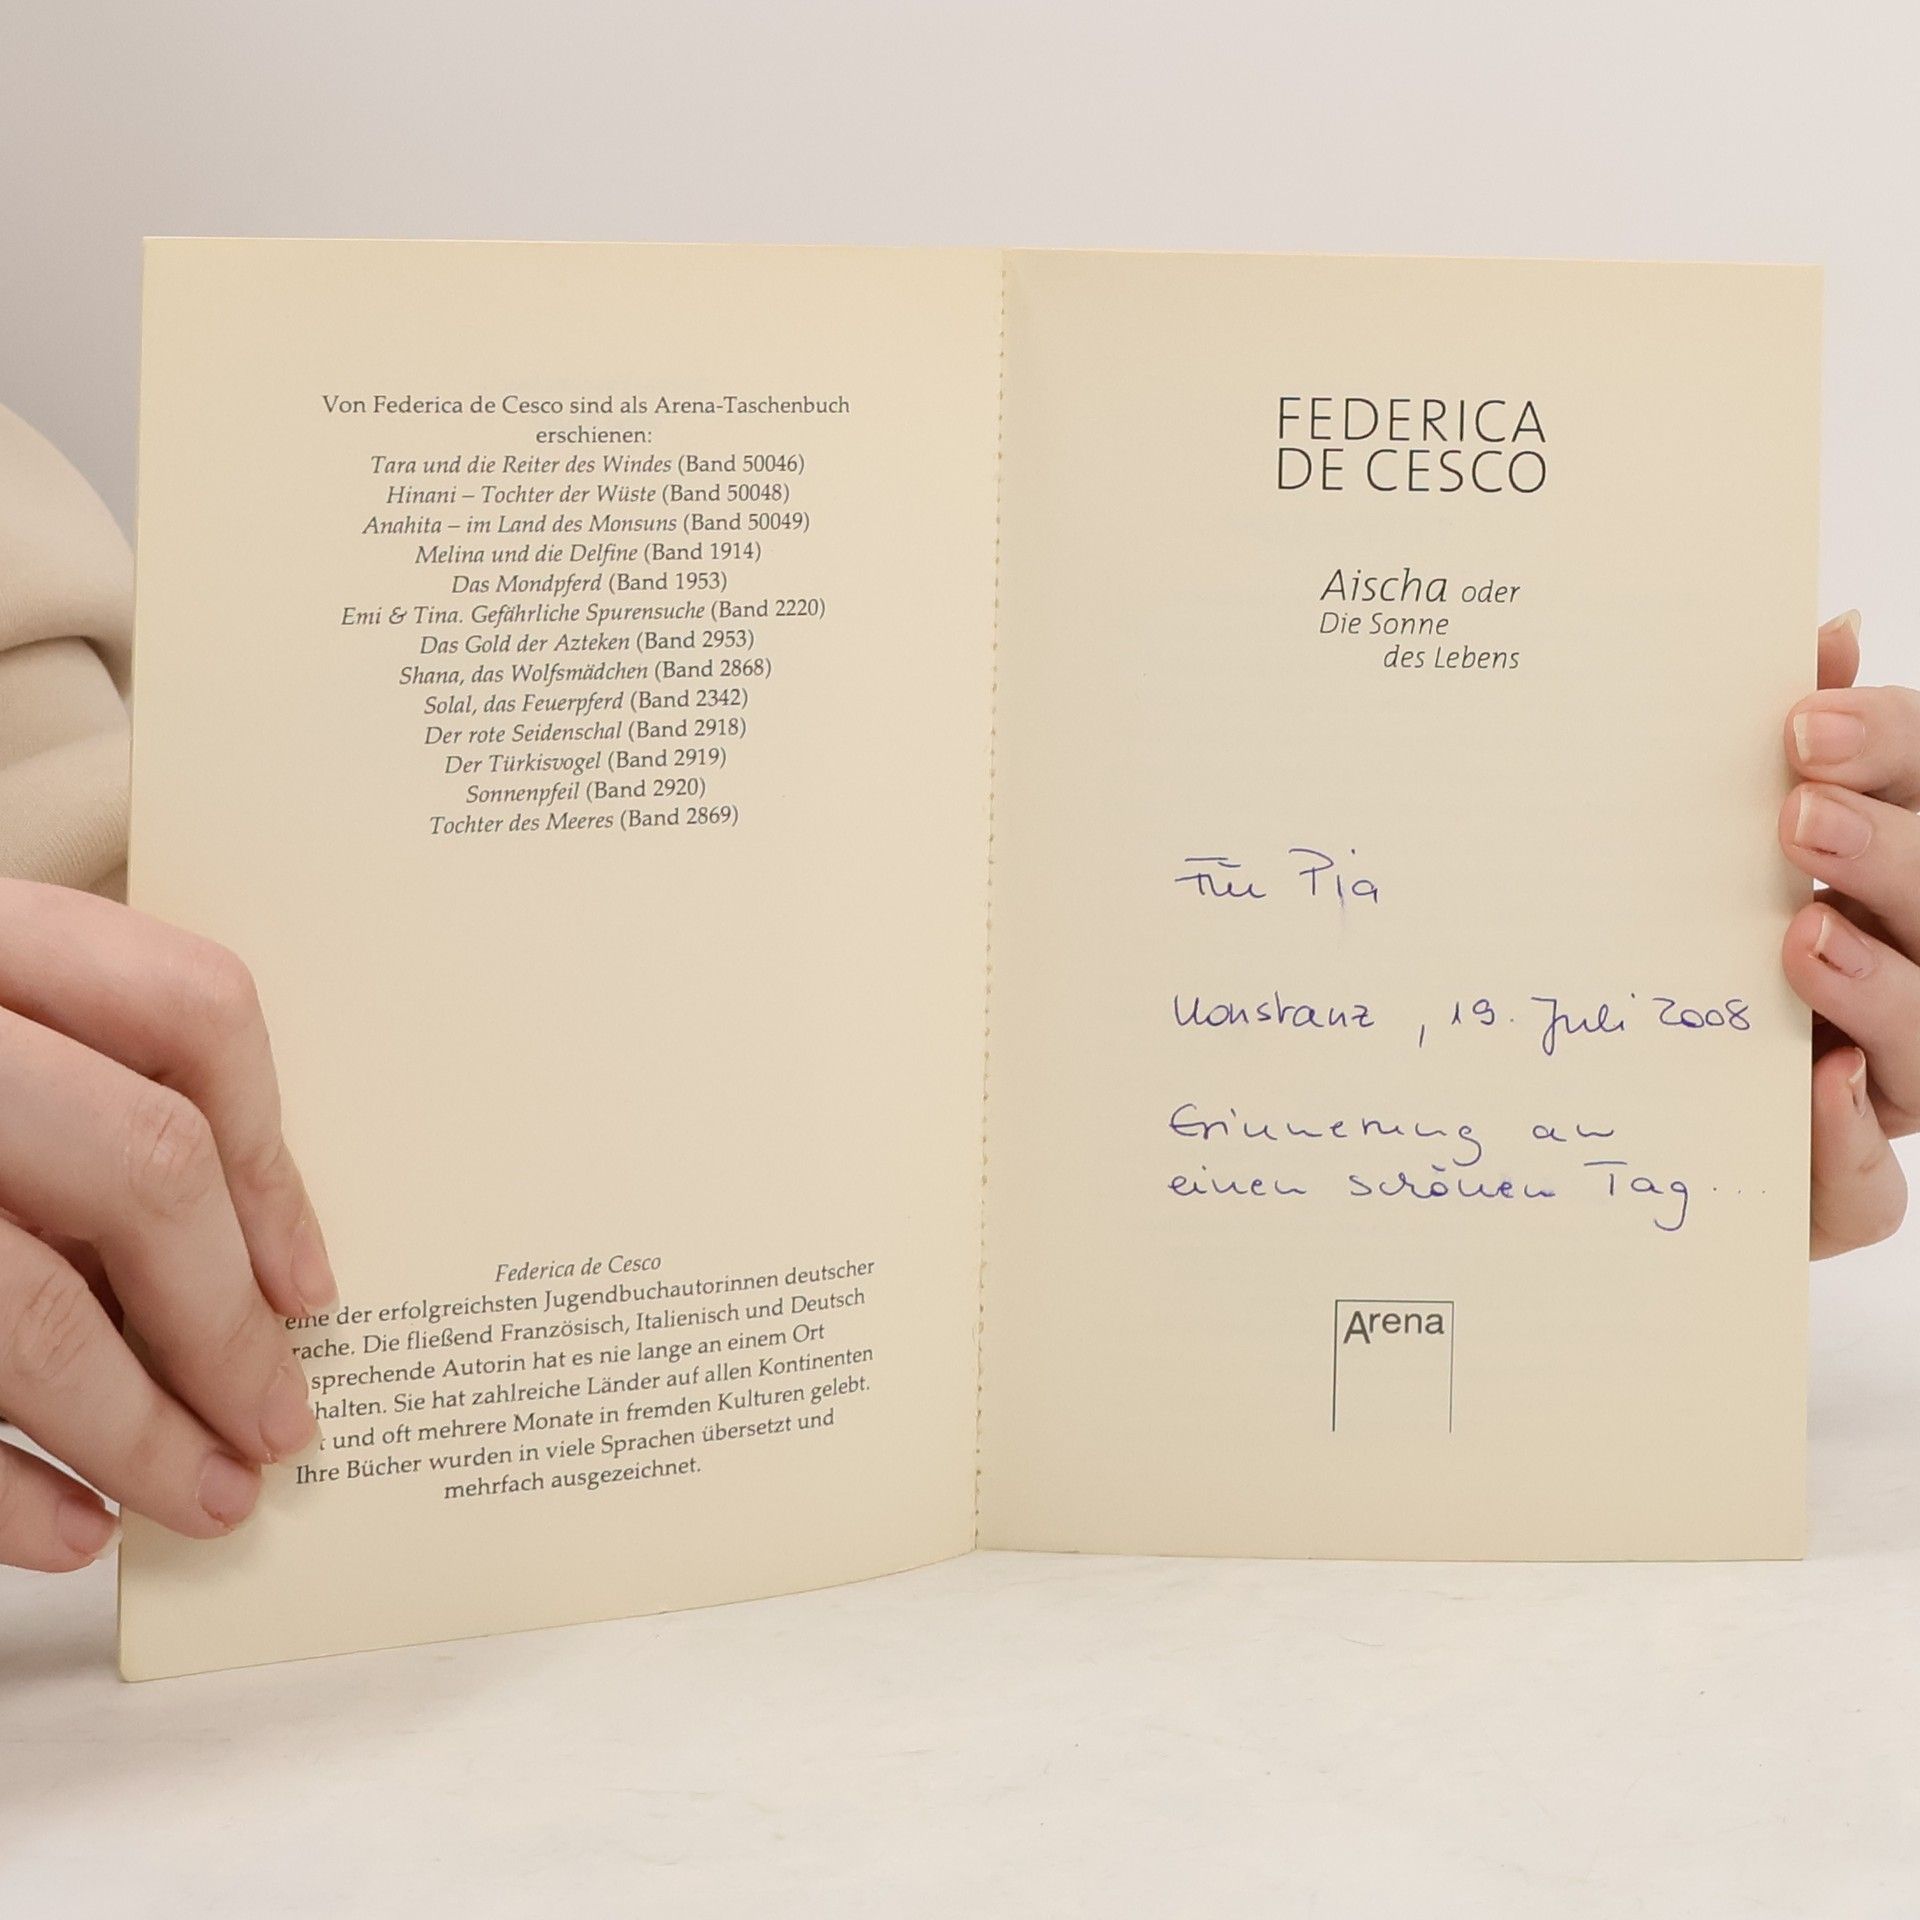 Von Federica de Cesco sind als Arena-Taschenbuch
erschienen:
Tara und die Reiter des Windes (Band 50046)
Hinani – Tochter der Wüste (Band 50048)
Anahita – im Land des Monsuns (Band 50049)
Melina und die Delfine (Band 1914)
Das Mondpferd (Band 1953)
Emi & Tina. Gefährliche Spurensuche (Band 2220)
Das Gold der Azteken (Band 2953)
Shana, das Wolfsmädchen (Band 2868)
Solal, das Feuerpferd (Band 2342)
Der rote Seidenschal (Band 2918)
Der Türkisvogel (Band 2919)
Sonnenpfeil (Band 2920)
Tochter des Meeres (Band 2869)
Federica de Cesco
eine der erfolgreichsten Jugendbuchautorinnen deutscher
rache. Die fließend Französisch, Italienisch und Deutsch
sprechende Autorin hat es nie lange an einem Ort
halten. Sie hat zahlreiche Länder auf allen Kontinenten
t und oft mehrere Monate in fremden Kulturen gelebt.
Ihre Bücher wurden in viele Sprachen übersetzt und
mehrfach ausgezeichnet.
FEDERICA
DE CESCO
Aischa oder
Die Sonne
des Lebens
Für Pia
Konstanz, 19. Juli 2008
Erinnerung an
einen schönen Tag...
Arena